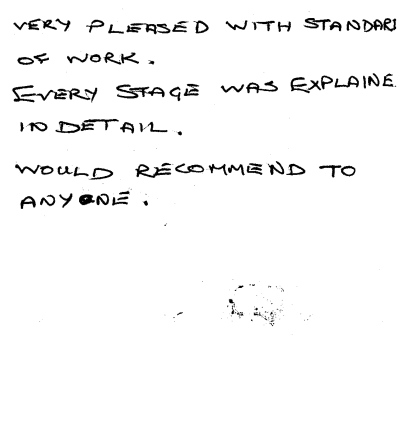 VERY PLEASED WITH STANDARD
OF WORK.
EVERY STAGE WAS EXPLAINE
IN DETAIL.
WOULD RECOMMEND TO
ANYONE.